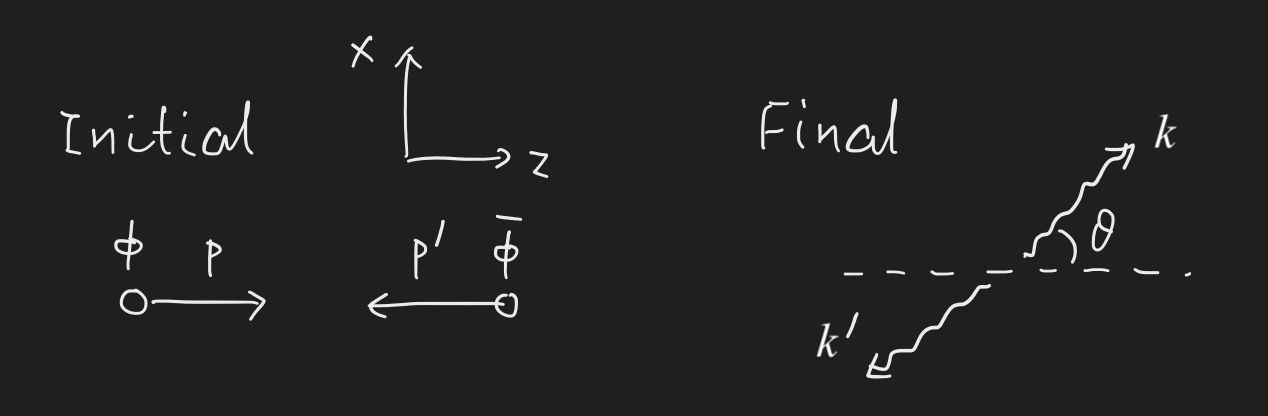 x
Initial
z
ϕ p p′ ϕ̅
Final
k
θ
k′